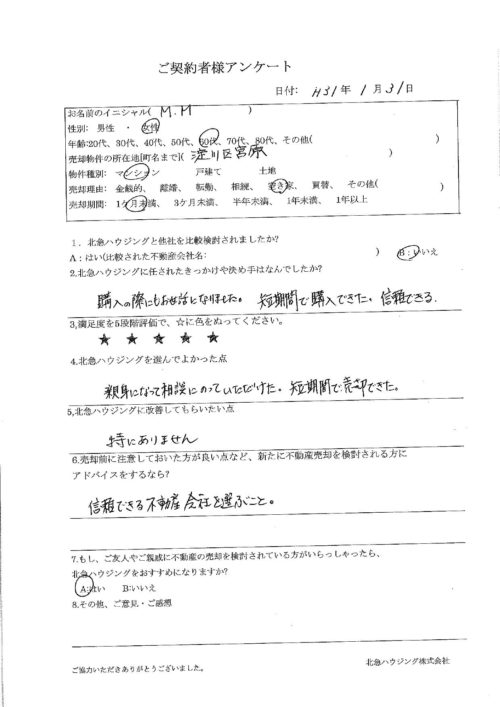 ご契約者様アンケート
日付: H31年1月31日
お名前のイニシャル( M.M )
性別: 男性 ・ 女性
年齢:20代、30代、40代、50代、60代、70代、80代、その他( )
売却物件の所在地[町名まで]( 淀川区宮原 )
物件種別: マンション 戸建て 土地
売却理由: 金銭的、 離婚、 転勤、 相続、 空き家、 買替、 その他( )
売却期間: 1ケ月未満、 3ケ月未満、 半年未満、 1年未満、 1年以上
1. 北急ハウジングと他社を比較検討されましたか?
A:はい(比較された不動産会社名: ) B:いいえ
2.北急ハウジングに任されたきっかけや決め手はなんでしたか?
購入の際にもお世話になりました。 短期間で購入できた。信頼できる.
3,満足度を5段階評価で、☆に色をぬってください。
★ ★ ★ ★ ★
4.北急ハウジングを選んでよかった点
親身になって相談にのっていただけた。短期間で売却できた。
5,北急ハウジングに改善してもらいたい点
特にありません
6.売却前に注意しておいた方が良い点など、新たに不動産売却を検討される方に
アドバイスをするなら?
信頼できる不動産会社を選ぶこと。
7.もし、ご友人やご親戚に不動産の売却を検討されている方がいらっしゃったら、
北急ハウジングをおすすめになりますか?
A:はい B:いいえ
8.その他、ご意見・ご感想
ご協力いただきありがとうございました。
北急ハウジング株式会社